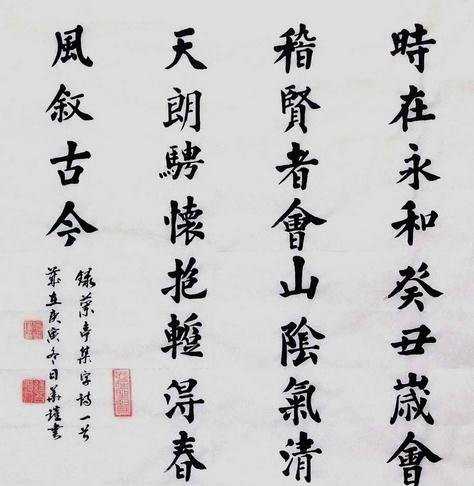 時在永和癸丑歲會
稽賢者會山陰氣清
天朗騁懷抱暫得春
風敘古今
錄蘭亭集字詩一首
歲在庚寅冬日書